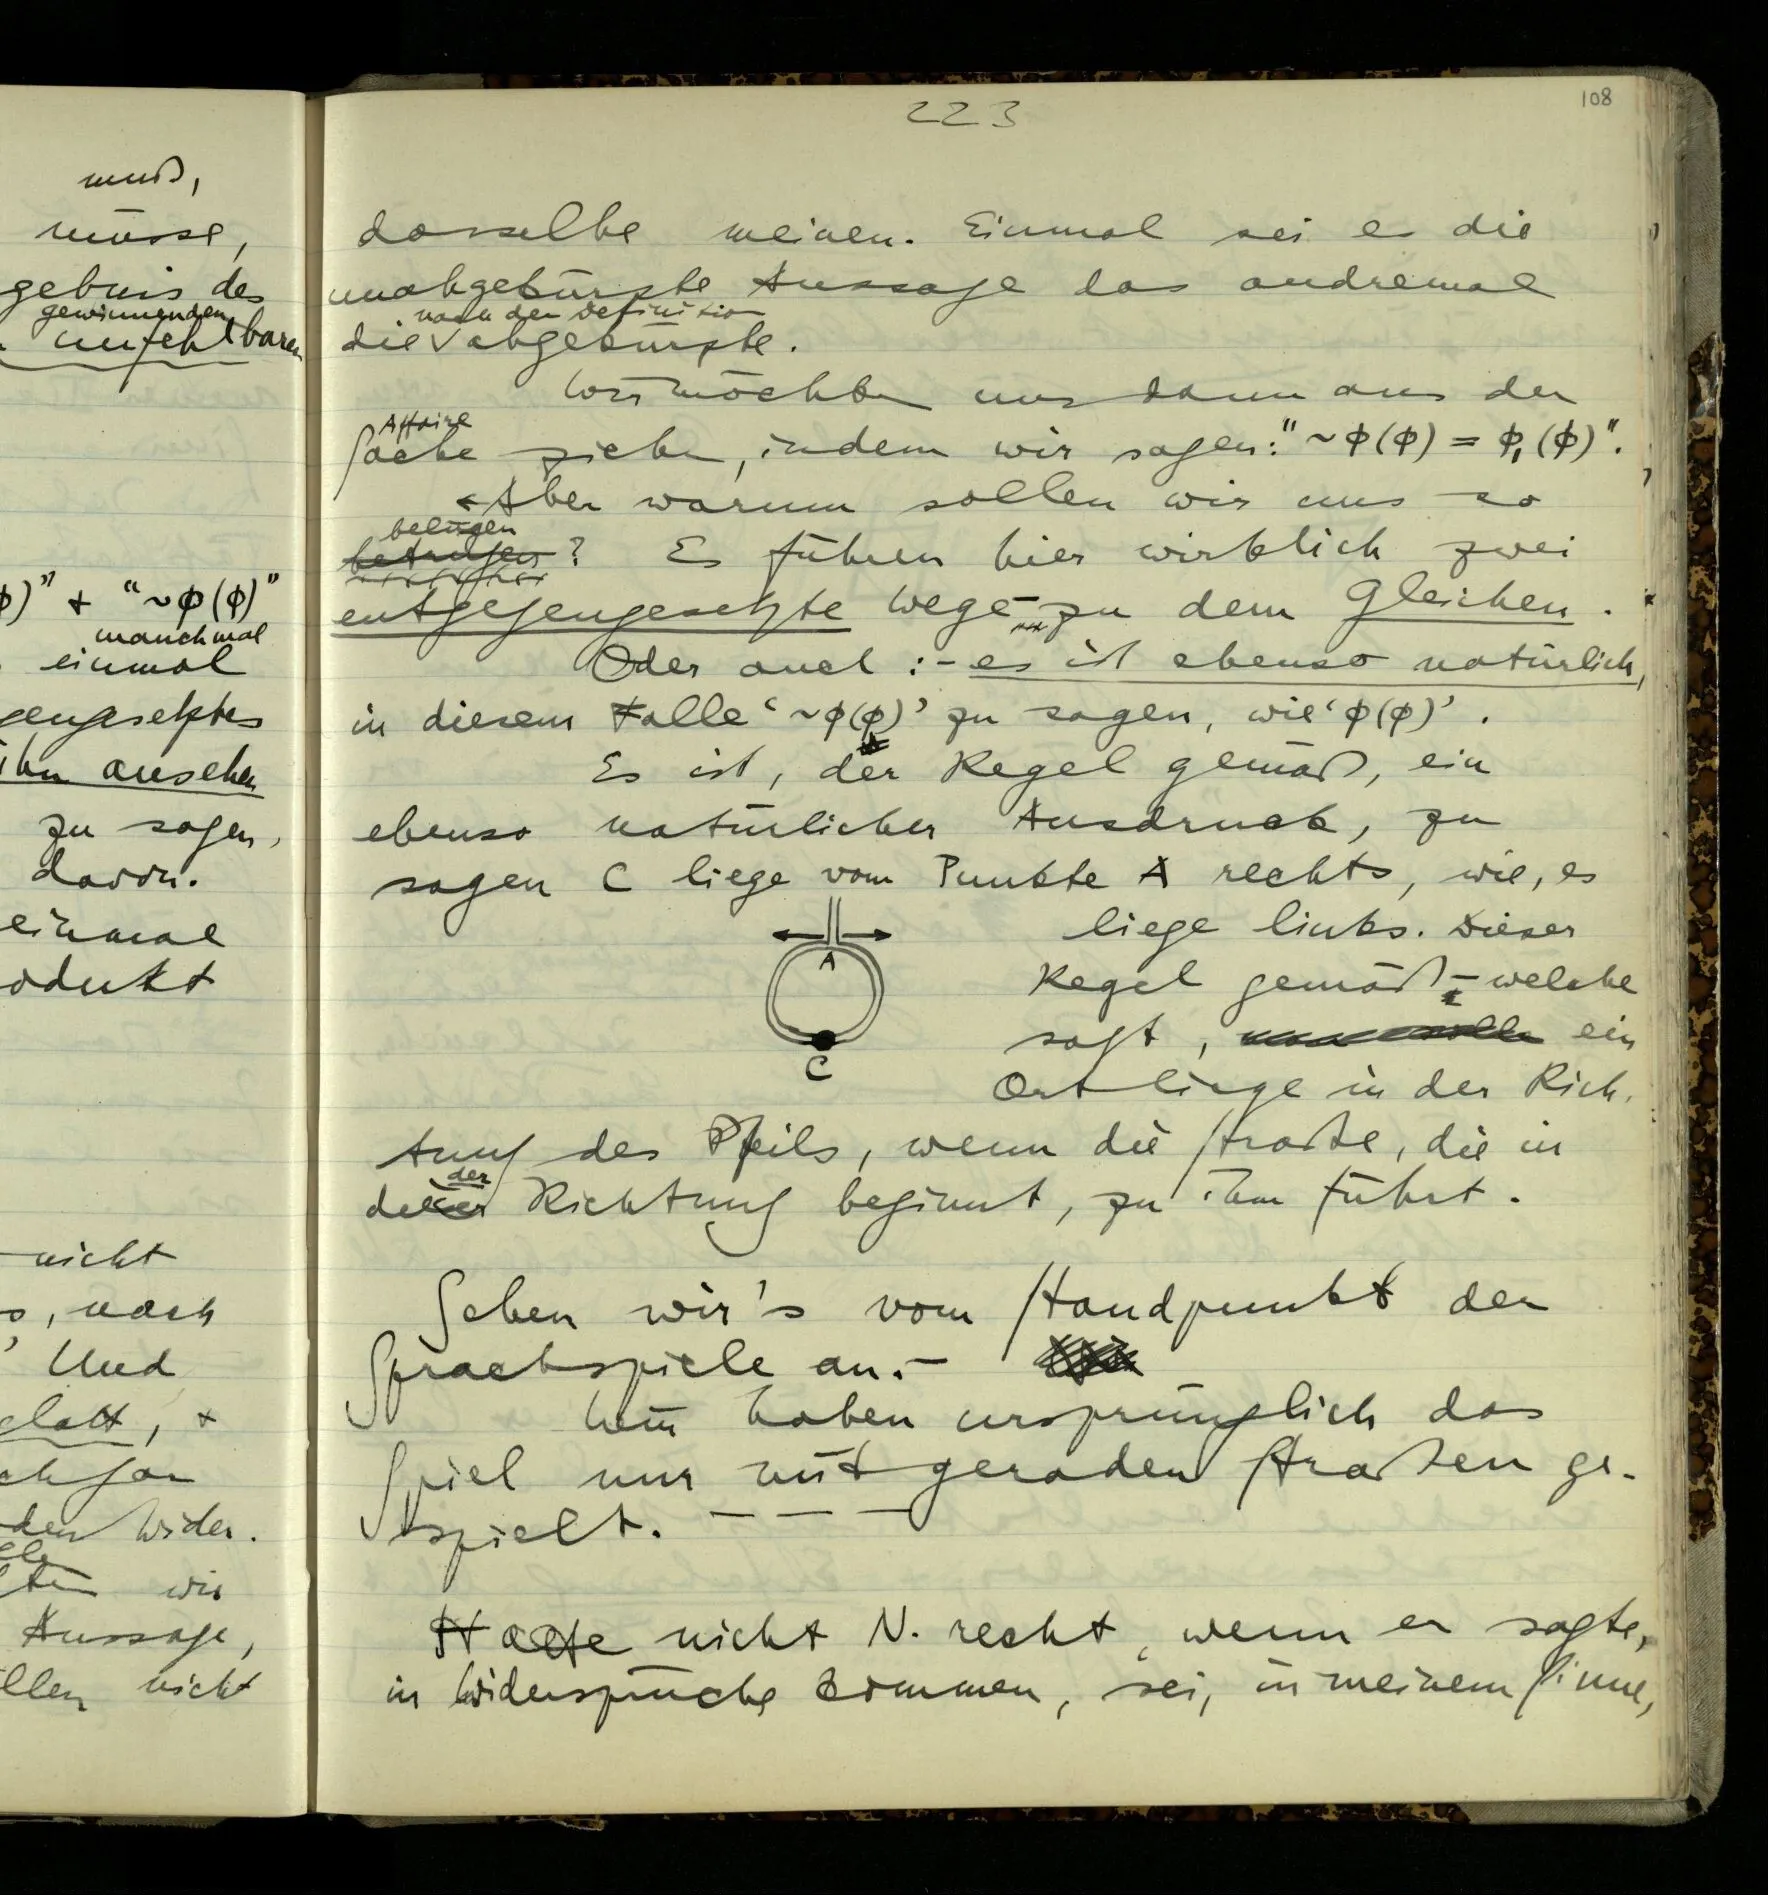 muß,
müsse,
gebnis des
gewinnenden
unfehlbaren
ϕ)” + “~ϕ(ϕ)”
manchmal
einmal
gengesetztes
ihn ansehen
zu sagen,
davon.
einmal
odukt
nicht
s, nach
’ Und
glatt, +
den Wider-
wir
Aussage,
llen nicht
223
108
dasselbe meinen. Einmal sei es die
unabgekürzte Aussage das andremal
nach der Definition
die abgekürzte.
Wir möchten uns dann aus der
Affaire
Sache ziehen, indem wir sagen: “~ϕ(ϕ) = ϕ₁(ϕ)”.
Aber warum sollen wir uns so
belügen
betrügen? Es führen hier wirklich zwei
entgegengesetzte Wege – zu dem Gleichen.
Oder auch: – es ist ebenso natürlich,
in diesem Falle ‘~ϕ(ϕ)’ zu sagen, wie ‘ϕ(ϕ)’.
Es ist, der Regel gemäß, ein
ebenso natürlicher Ausdruck, zu
sagen C liege vom Punkte A rechts, wie, es
liege links. Dieser
Regel gemäß – welche
sagt, man solle ein
Ort liege in der Rich-
A
C
tung des Pfeils, wenn die Straße, die in
der
dieser Richtung beginnt, zu ihm führt.
Sehen wir's vom Standpunkt der
Sprachspiele an. –
Wir haben ursprünglich das
Spiel nur mit geraden Straßen ge-
spielt. – – –
Hatte nicht N. recht, wenn er sagte,
in Widersprüche kommen, sei, in meinem Sinne,